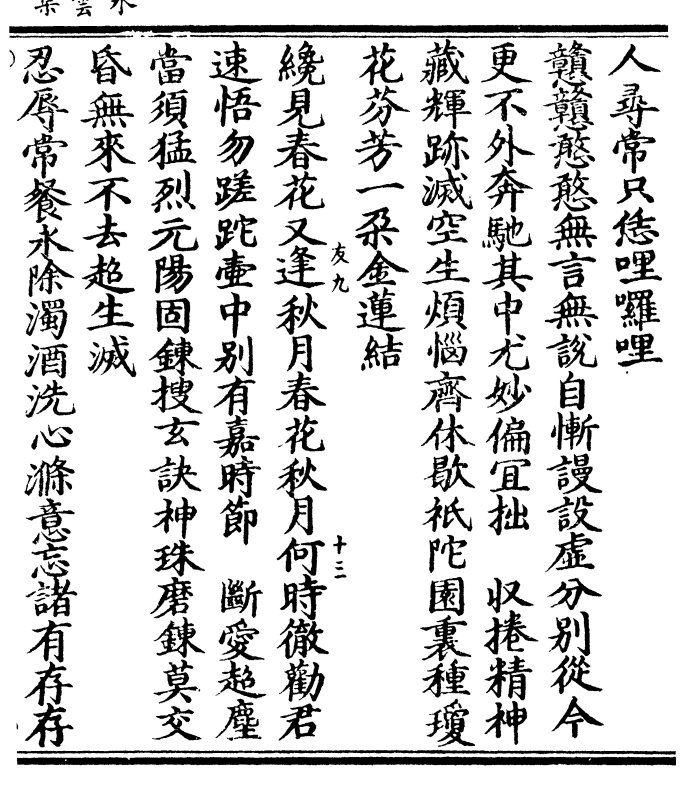 人尋常只恁哩囉哩
戇戇憨憨無言無說自慚謾設虛分別從今
更不外奔馳其中尤妙偏冝拙　収捲精神
藏輝跡滅空生煩惱齊休歇祇陀園裏種瓊
花芬芳一朶金蓮結
纔見春花又逢秋月春花秋月何時徹勸君
友九
十三
速悟勿蹉跎壷中別有嘉時節　斷愛超塵
當須猛烈元陽固鍊搜玄訣神珠磨鍊莫交
昏無來不去超生滅
忍辱常餐水除濁酒洗心滌意忘諸有存存